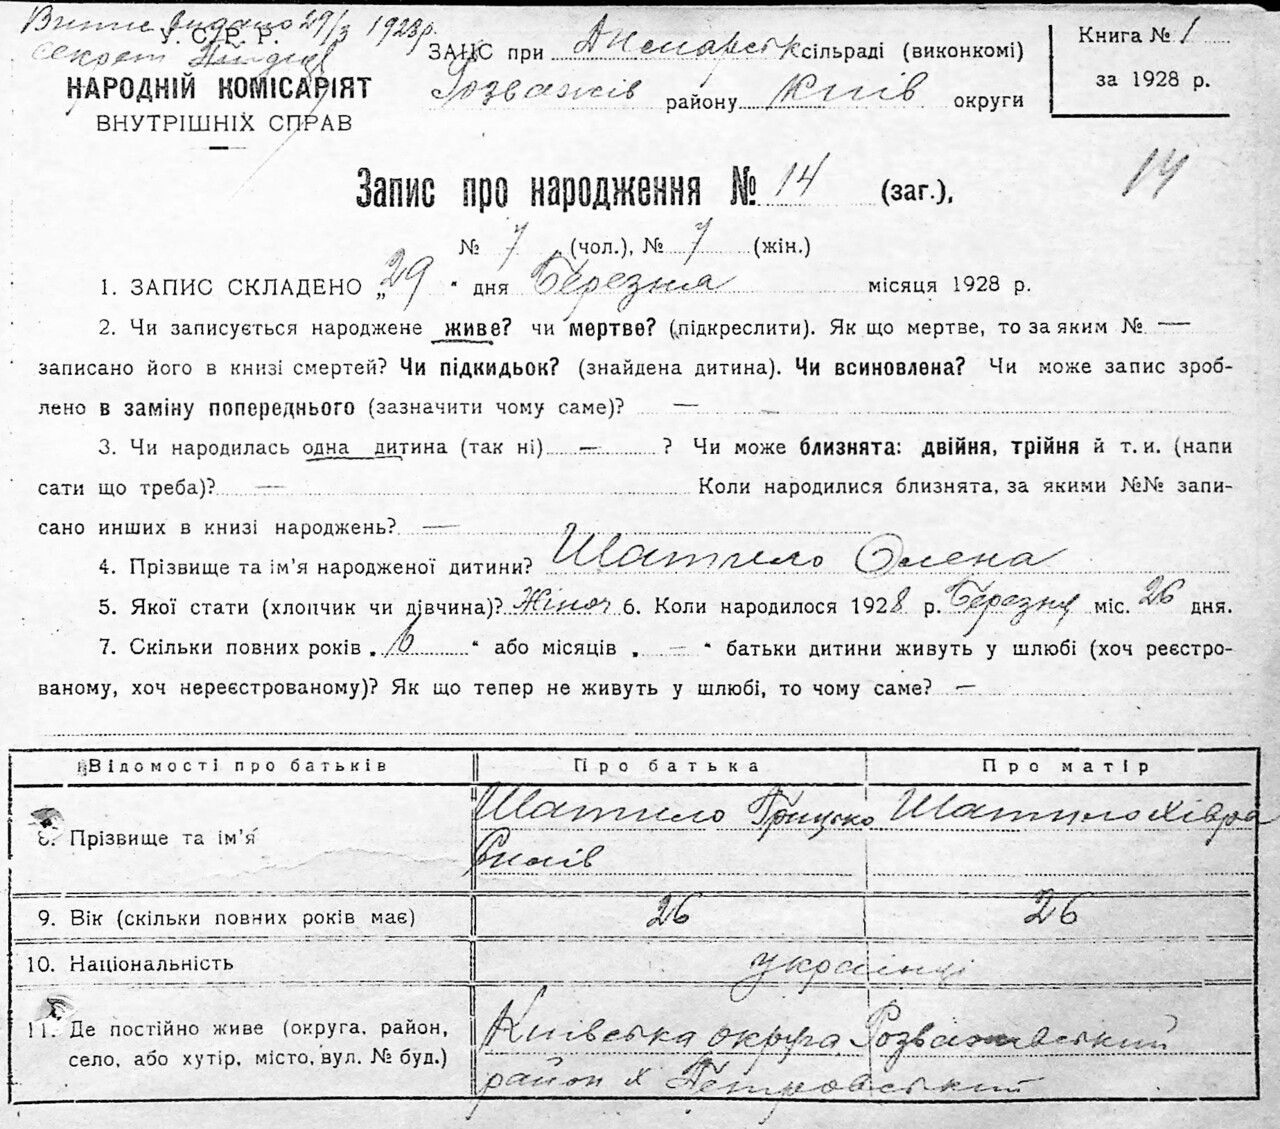 Витяг видано 29/3 1928 р.
У. С. Р. Р.
секрет
НАРОДНІЙ КОМІСАРІЯТ
ВНУТРІШНІХ СПРАВ
ЗАГС при сільраді (виконкомі)
Розважів району Київ округи
Книга № 1
за 1928 р.
Запис про народження № 14 (заг.),
14
№ 7 (чол.), № 7 (жін.)
1. ЗАПИС СКЛАДЕНО „29 " дня Березня місяця 1928 р.
2. Чи записується народжене живе? чи мертве? (підкреслити). Як що мертве, то за яким № —
записано його в книзі смертей? Чи підкидьок? (знайдена дитина). Чи всиновлена? Чи може запис зроб-
лено в заміну попереднього (зазначити чому саме)? —
3. Чи народилась одна дитина (так ні) — ? Чи може близнята: двійня, трійня й т. и. (напи
сати що треба)? — Коли народилися близнята, за якими №№ запи-
сано инших в книзі народжень? —
4. Прізвище та ім'я народженої дитини? Шатило Олена
5. Якої стати (хлопчик чи дівчина)? Жіноч 6. Коли народилося 1928 р. Березня міс. 26 дня.
7. Скільки повних років „ 6 " або місяців „ — " батьки дитини живуть у шлюбі (хоч реєстро-
ваному, хоч нереєстрованому)? Як що тепер не живуть у шлюбі, то чому саме? —
Відомості про батьків Про батька Про матір
8. Прізвище та ім'я Шатило Грицько Шатило Хівра
9. Вік (скільки повних років має) 26 26
10. Національність українці
11. Де постійно живе (округа, район, село, або хутір, місто, вул. № буд.) Київська округа Розважівський
район х Петровський